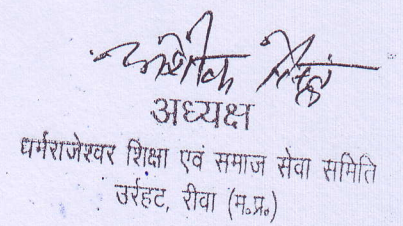 अशोक सिंह
अध्यक्ष
धर्मराजेश्वर शिक्षा एवं समाज सेवा समिति
उर्रहट, रीवा (म.प्र.)